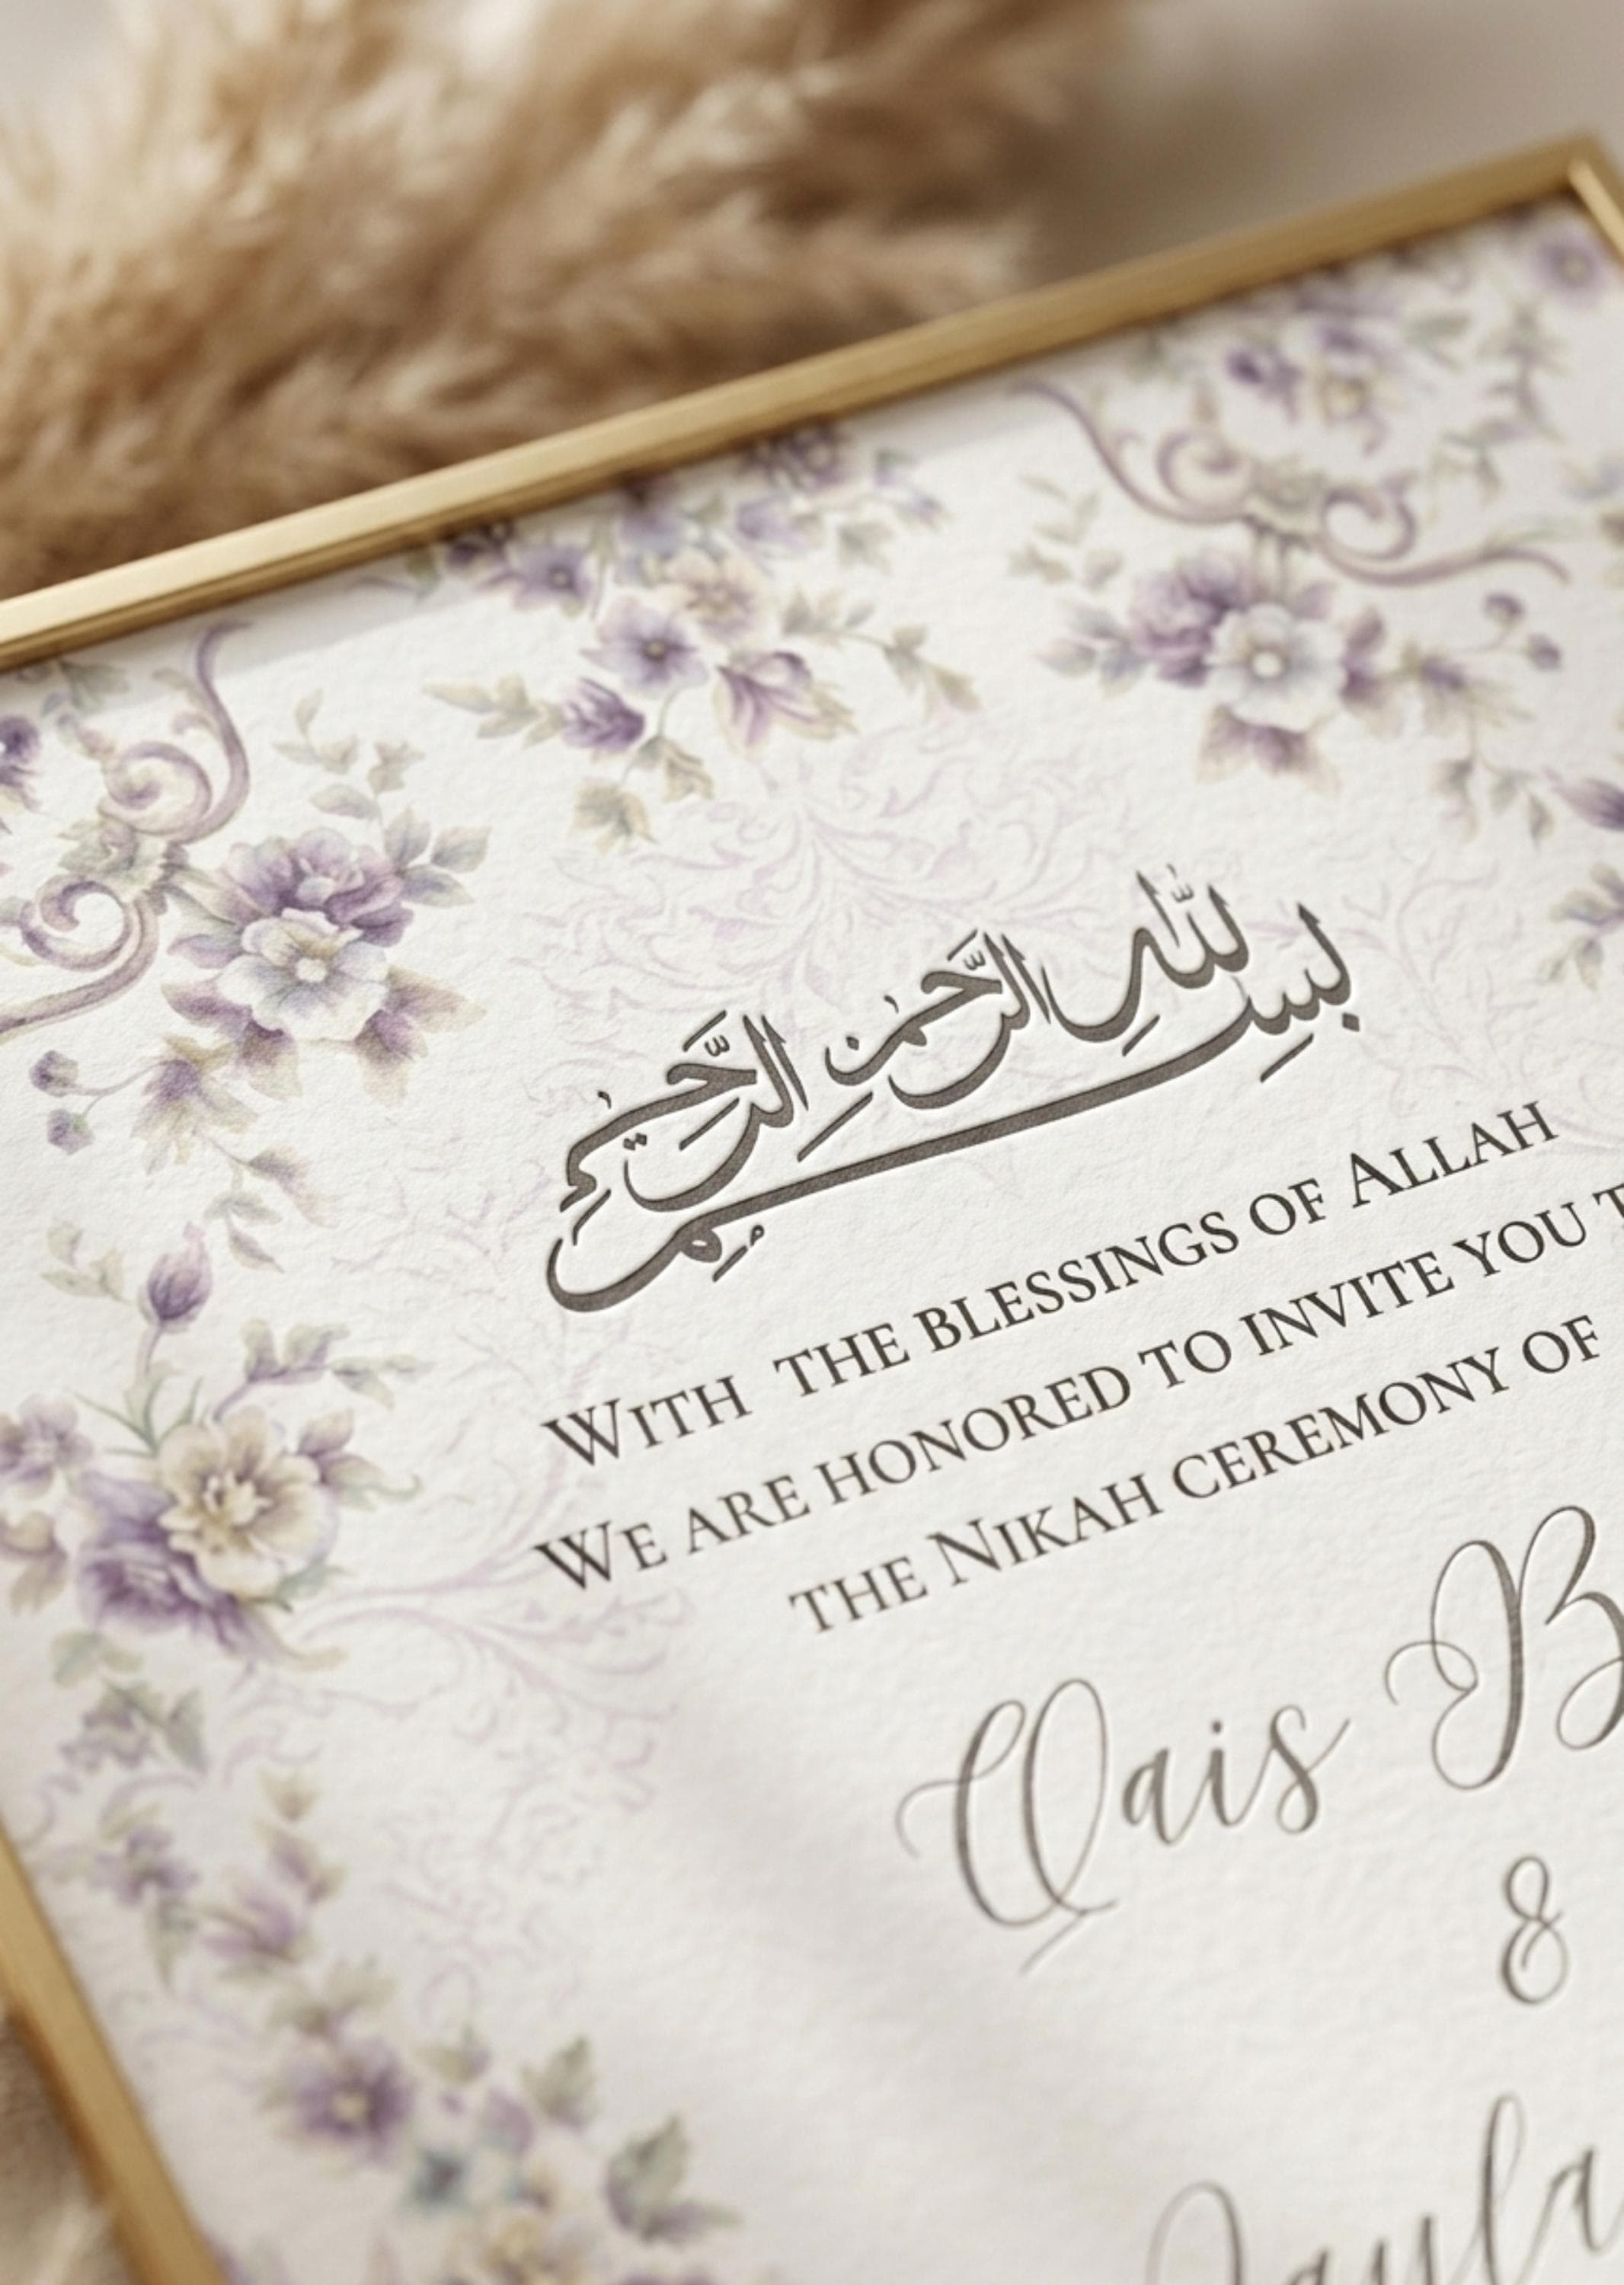 بِسْمِ اللهِ الرَّحْمٰنِ الرَّحِيْمِ
WITH THE BLESSINGS OF ALLAH
WE ARE HONORED TO INVITE YOU
THE NIKAH CEREMONY OF
Qais
&